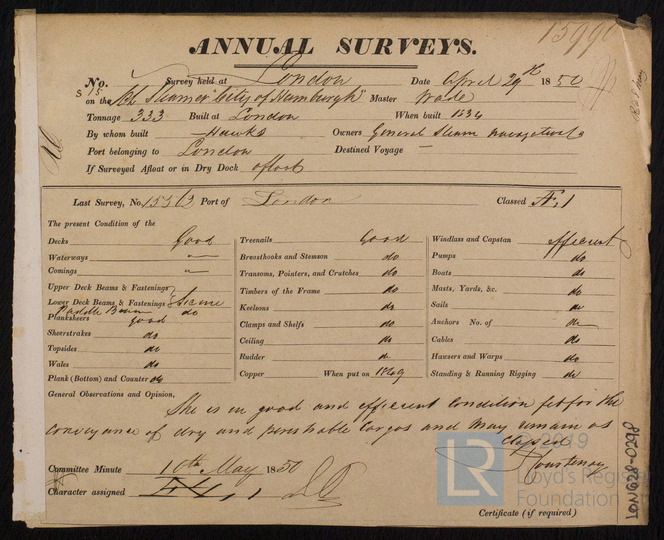 ANNUAL SURVEYS.
No. Survey held at London Date April 29th 1850
S 15 on the Steamer "City of Hamburgh" Master Wade
Tonnage 333 Built at London When built 1834
By whom built Owners General Steam
Port belonging to London Destined Voyage —
If Surveyed Afloat or in Dry Dock afloat
Last Survey, No. Port of London Classed
The present Condition of the
Decks Good
Waterways "
Comings "
Upper Deck Beams & Fastenings
Lower Deck Beams & Fastenings Secure
Paddle Beams do
Planksheers Good
Sheerstrakes do
Topsides do
Wales do
Plank (Bottom) and Counter do
Treenails Good
Breasthooks and Stemson do
Transoms, Pointers, and Crutches do
Timbers of the Frame do
Keelsons do
Clamps and Shelfs do
Ceiling do
Rudder do
Copper When put on 1849
Windlass and Capstan efficient
Pumps do
Boats do
Masts, Yards, &c. do
Sails do
Anchors No. of do
Cables do
Hawsers and Warps do
Standing & Running Rigging do
General Observations and Opinion,
She is in good and efficient condition fit for the
conveyance of dry and perishable cargos and may remain as
classed
Courtenay
Committee Minute 10th May 1850
Character assigned
Certificate (if required)
© 2019
LR
Lloyd's Register
Foundation
LON628-0298